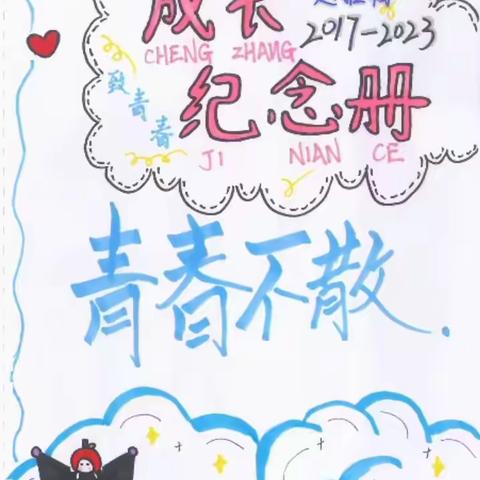 成长
2017-2023
CHENG ZHANG
致青春
纪念册
JI NIAN CE
青春不散.